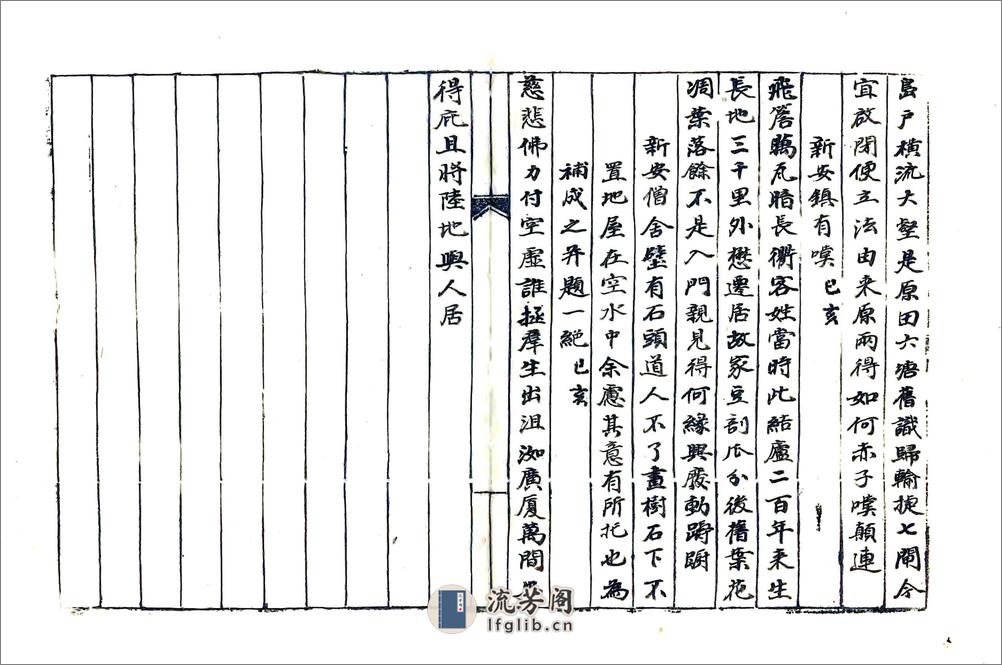 島戶橫流大壑是原田六塘舊識歸輸捷七閘今
宜啟閉便立法由来原兩得如何赤子嘆顛連
新安鎮有嘆己亥
飛甍鴟瓦暗長衢客姓當時此結廬二百年来生
長地三千里外懋遷居故家豆剖瓜分後舊葉花
凋葉落餘不是入門親見得何緣興廢動躊躕
新安僧舍壁有石頭道人不了畫樹石下不
置地屋在空水中余慮其意有所托也為
補成之并題一絕己亥
慈悲佛力付空虛誰拯羣生出沮洳廣厦萬間
得庇且將陸地與人居
流芳阁
lfglib.cn